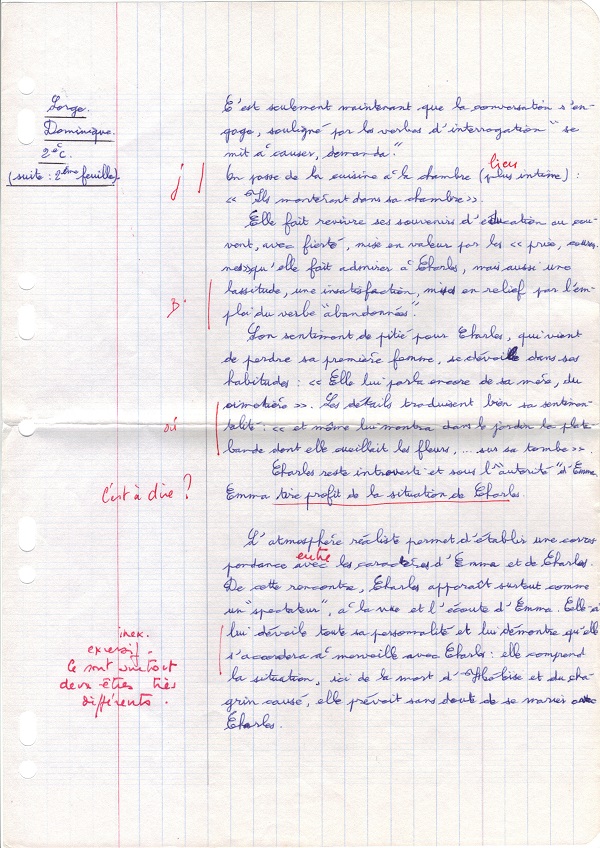 Sorge.
Dominique.
2è C.
(suite : 2ème feuille)
C'est seulement maintenant que la conversation s'en-
gage, souligné par les verbes d'interrogation "se
mit à causer, demanda".
lieu
On passe de la cuisine à la chambre (plus intime) :
« Ils montèrent dans sa chambre ».
Elle fait revivre ses souvenirs d'éducation au cou-
vent, avec fierté, mise en valeur par les « prix, couron-
nes » qu'elle fait admirer à Charles, mais aussi une
lassitude, une insatisfaction, mises en relief par l'em-
B.
ploi du verbe "abandonnées".
Son sentiment de pitié pour Charles, qui vient
de perdre sa première femme, se dévoile dans ses
habitudes : « Elle lui parla encore de sa mère, du
cimetière ». Les détails traduisent bien sa sentimen-
oui
talité : « et même lui montra dans le jardin la plate-
bande dont elle cueillait les fleurs, ... sur sa tombe ».
Charles reste introverti et sous l'"autorité" d'Emma.
C'est à dire ?
Emma tire profit de la situation de Charles.
L'atmosphère réaliste permet d'établir une corres
entre
pondance avec les caractères d'Emma et de Charles.
De cette rencontre, Charles apparaît surtout comme
un "spectateur", à la vue et l'écoute d'Emma. Elle-ci
inex.
excessif.
Ce sont surtout
deux êtres très
différents.
lui dévoile toute sa personnalité et lui démontre qu'elle
s'accordera à merveille avec Charles : elle comprend
la situation, ici de la mort d'Héloïse et du cha-
grin causé, elle prévoit sans doute de se marier avec
Charles.